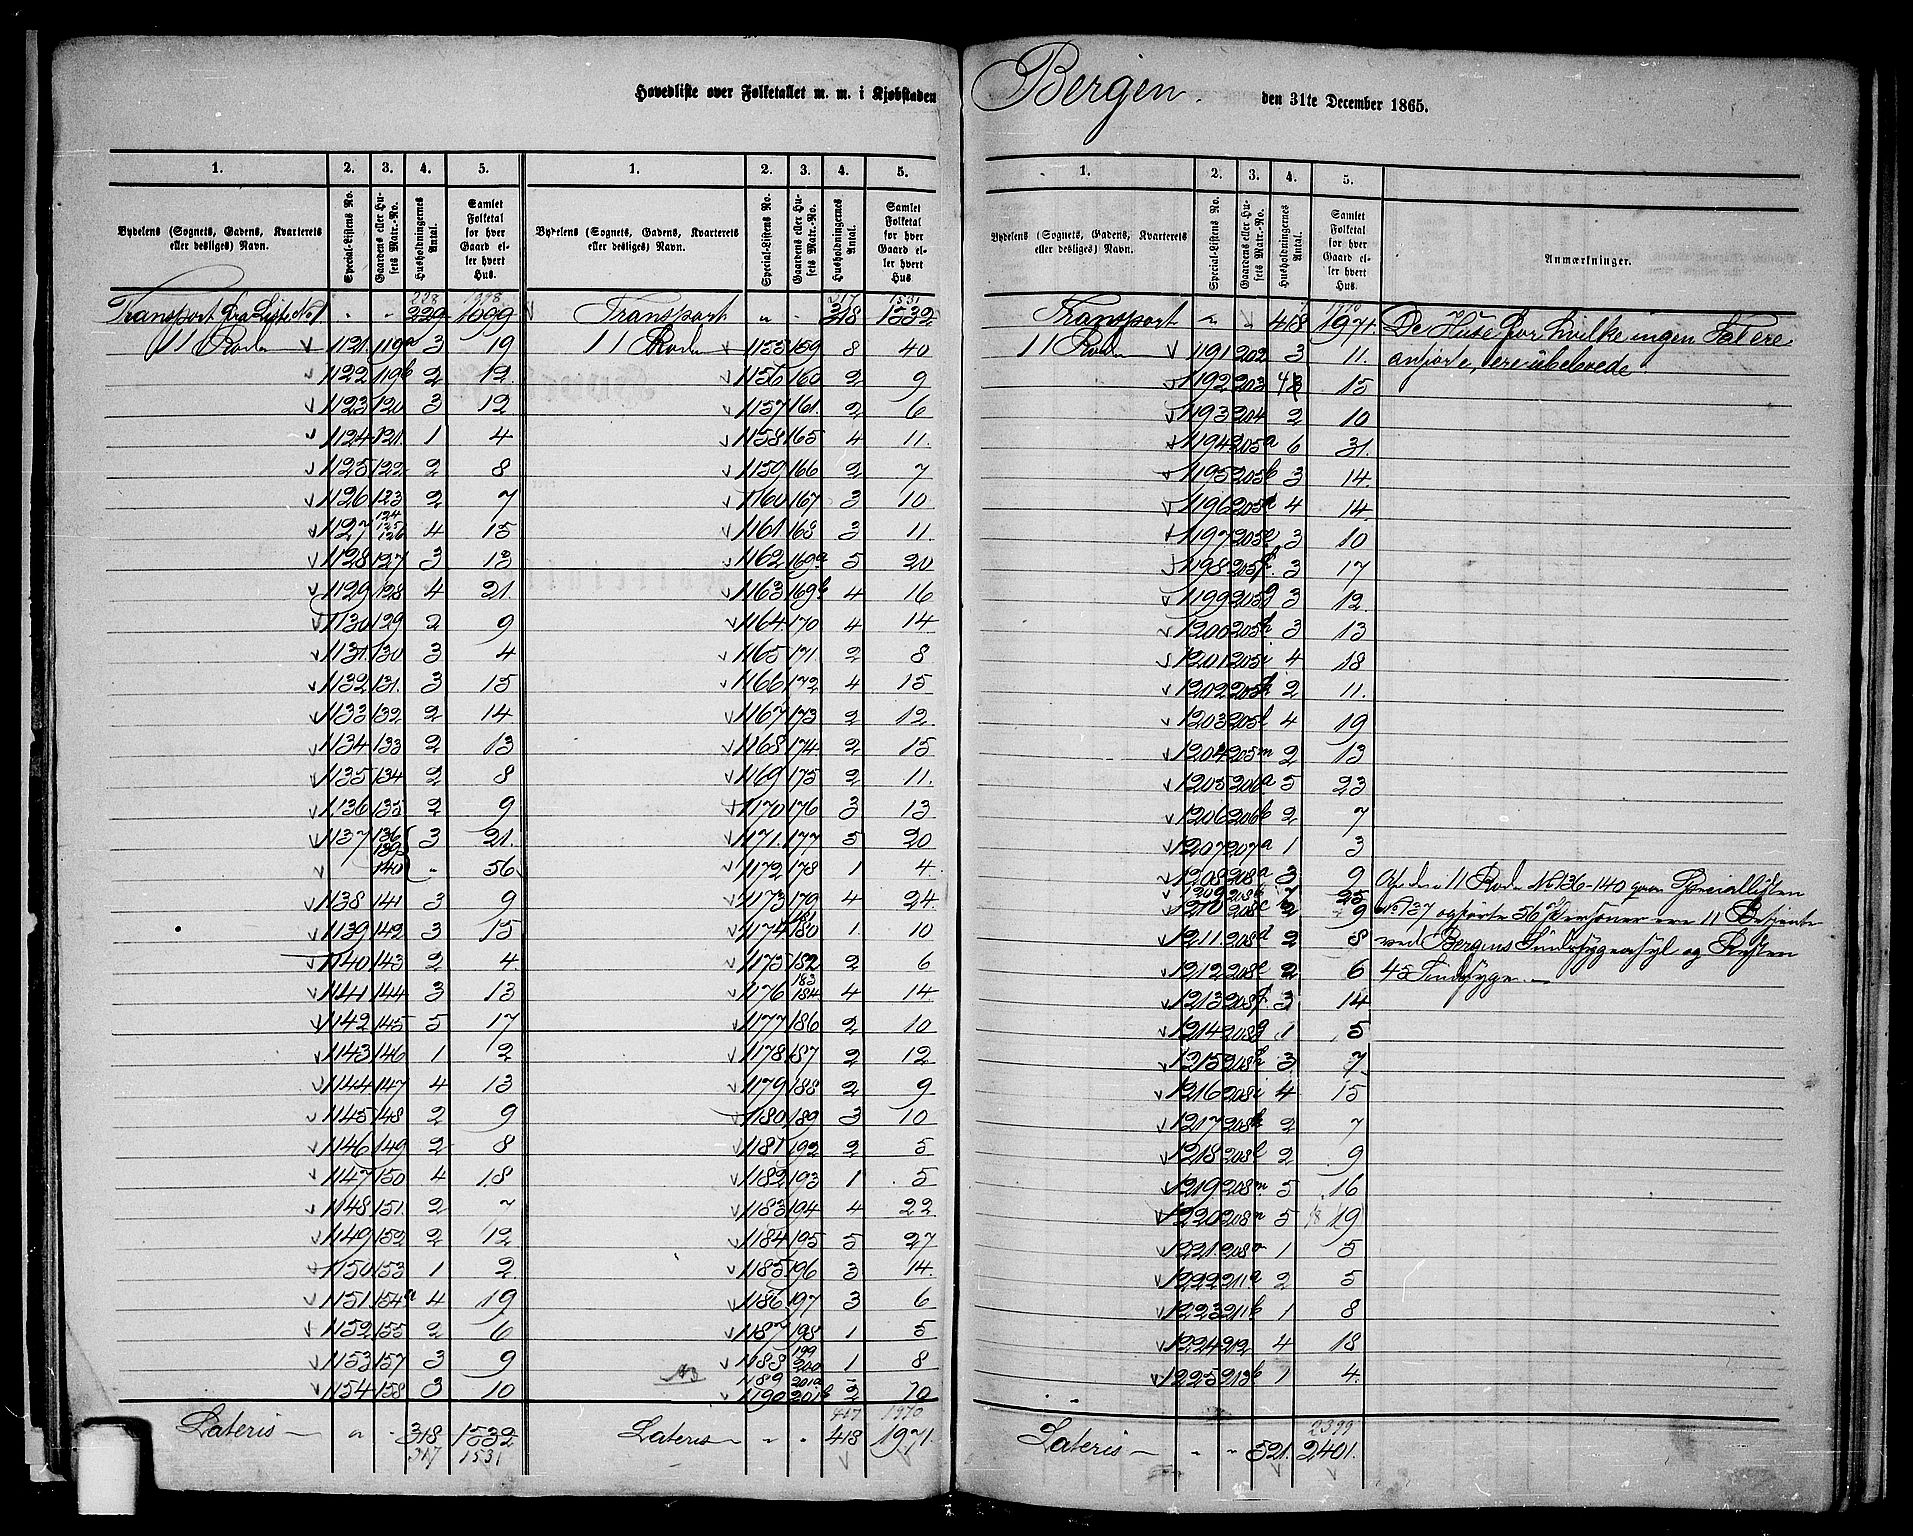 Hovedliste over Folketallet m. m. i Kjøbstaden Bergen. den 31te December 1865.
1. 2. 3. 4. 5.
Bydelens (Sognets, Gadens, Kvarterets eller desliges) Navn. Special-Listens No. Gaardens eller Husets Matr.-No. Husholdningernes Antal. Samlet Folketal for hver Gaard eller hvert Hus.
228 1098
Transport fra Liste No 1 " " 229 1099
11 Rode 1121 119a 3 19
1122 119b 2 12
1123 120 3 12
1124 121 1 4
1125 122 2 8
1126 123 2 7
1127 124 125 126 4 15
1128 127 3 13
1129 128 4 21
1130 129 2 9
1131 130 3 4
1132 131 3 15
1133 132 2 14
1134 133 2 13
1135 134 2 8
1136 135 2 9
1137 136 139 3 21
140 " 56
1138 141 3 9
1139 142 3 15
1140 143 2 4
1141 144 3 13
1142 145 5 17
1143 146 1 2
1144 147 4 13
1145 148 2 9
1146 149 2 8
1147 150 4 18
1148 151 2 7
1149 152 2 12
1150 153 1 2
1151 154a 4 19
1152 155 2 6
1153 157 3 9
1154 158 3 10
Lateris " " 318 1532
317 1531
1. 2. 3. 4. 5.
Bydelens (Sognets, Gadens, Kvarterets eller desliges) Navn. Special-Listens No. Gaardens eller Husets Matr.-No. Husholdningernes Antal. Samlet Folketal for hver Gaard eller hvert Hus
317 1531
Transport " " 318 1532
11 Rode 1155 159 8 40
1156 160 2 9
1157 161 2 6
1158 165 4 11
1159 166 2 7
1160 167 3 10
1161 168 3 11
1162 169a 5 20
1163 169b 4 16
1164 170 4 14
1165 171 2 8
1166 172 4 15
1167 173 2 12
1168 174 2 15
1169 175 2 11
1170 176 3 13
1171 177 5 20
1172 178 1 4
1173 179 4 24
1174 181 180 1 10
1175 182 2 6
1176 183 184 4 14
1177 186 2 10
1178 187 2 12
1179 188 2 9
1180 189 3 10
1181 192 2 5
1182 193 1 5
1183 194 4 22
1184 195 5 27
1185 196 3 14
1186 197 3 6
1187 198 1 5
1188 199 200 1 8
1189 201a
1190 201b 2 10
417 1970
Lateris " " 418 1971
1. 2. 3. 4. 5.
Bydelens (Sognets, Gadens, Kvarterets eller desliges) Navn. Special-Listens No. Gaardens eller Husets Matr.-No. Husholdningernes Antal. Samlet Folketal for hver Gaard eller hvert Hus. Anmærkninger.
1970
Transport " " 418 1971. De Huse for hvilke ingen Tal ere
11 Rode 1191 202 3 11. anførte, ere ubeboede.
1192 203 4 15
1193 204 2 10
1194 205a 6 31
1195 205b 3 14
1196 205d 4 14
1197 205e 3 10
1198 205f 3 17
1199 205g 3 12
1200 205h 3 13
1201 205i 4 18
1202 205k 2 11
1203 205l 4 19
1204 205m 2 13
1205 206a 5 23
1206 206b 2 7
1207 207a 1 3
1208 208a 3 9 Af de i 11 Rode No 136-140 paa Speciallisten
1209 208b 7 25
1210 208c 2 9 No 137 opførte 56 Personer ere 11 Betjente
1211 208d 2 8 ved Bergens Sindssygeasyl og Resten
1212 208e 2 6 45 Sindssyge.
1213 208f 3 14
1214 208g 1 5
1215 208h 3 7
1216 208i 4 15
1217 208k 2 7
1218 208l 2 9
1219 208m 5 16
1220 208n 5 18 19
1221 208o 1 5
1222 211a 2 5
1223 211b 1 8
1224 212 4 18
1225 213b 1 4
2399
Lateris " " 521. 2401.